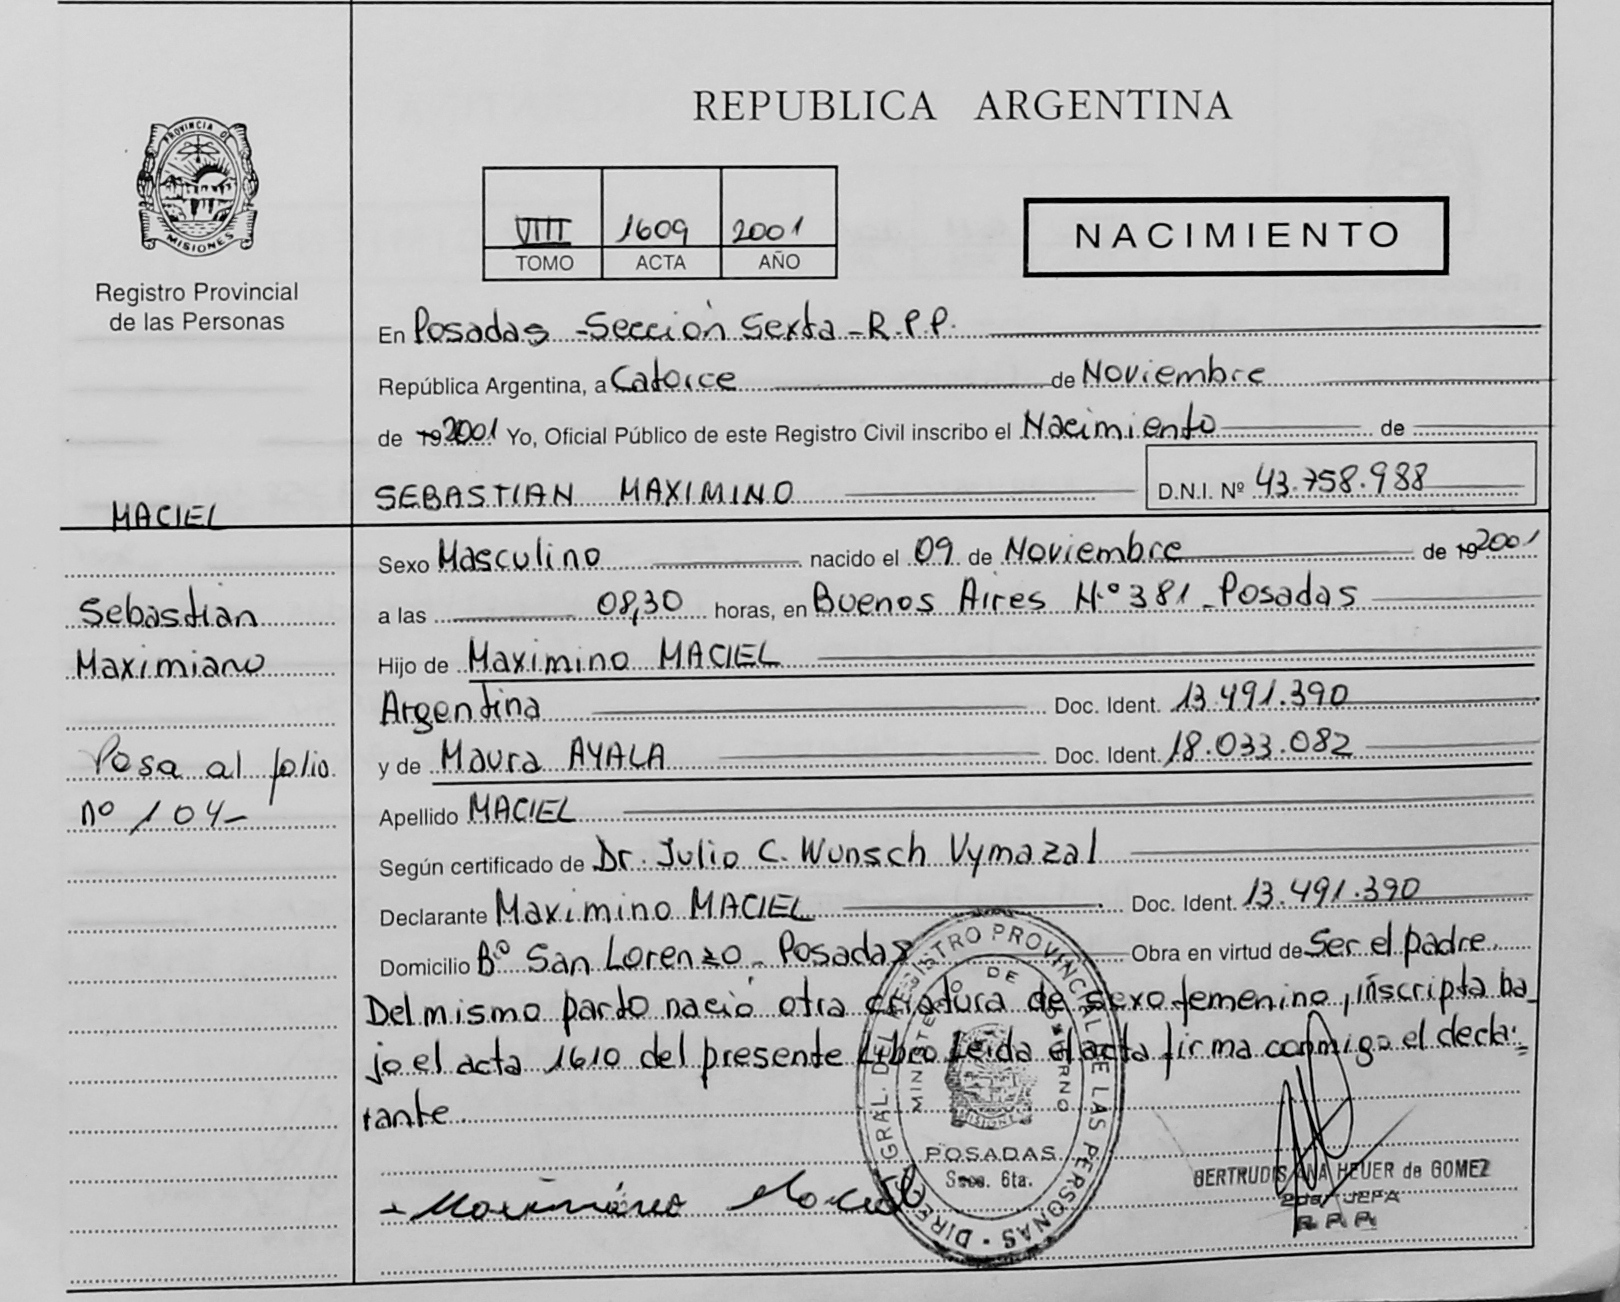 REPUBLICA ARGENTINA
PROVINCIA DE
MISIONES
Registro Provincial
de las Personas
VIII 1609 2001
TOMO ACTA AÑO
NACIMIENTO
En Posadas - Sección Sexta - R.P.P.
República Argentina, a Catorce de Noviembre
de 19 2001 Yo, Oficial Público de este Registro Civil inscribo el Nacimiento de
SEBASTIAN MAXIMINO D.N.I. Nº 43.758.988
MACIEL
Sexo Masculino nacido el 09 de Noviembre de 19 2001
Sebastián
a las 08,30 horas, en Buenos Aires N.º 381 - Posadas
Maximiano
Hijo de Maximino MACIEL
Argentina Doc. Ident. 13.491.390
Pasa al folio
y de Maura AYALA Doc. Ident. 18.033.082
nº 104-
Apellido MACIEL
Según certificado de Dr. Julio C. Wunsch Vymazal
Declarante Maximino MACIEL Doc. Ident. 13.491.390
Domicilio Bº San Lorenzo - Posadas Obra en virtud de Ser el padre
Del mismo parto nació otra criatura de sexo femenino, inscripta ba_
jo el acta 1610 del presente Libro Leida el acta firma conmigo el decla=
rante
DIREC. GRAL. DEL REGISTRO PROVINCIAL DE LAS PERSONAS
MINISTERIO DE GOBIERNO
MISIONES
POSADAS
Secc. 6ta.
GERTRUDIS ANA HEUER de GOMEZ
2da. JEFA
R.P.P.